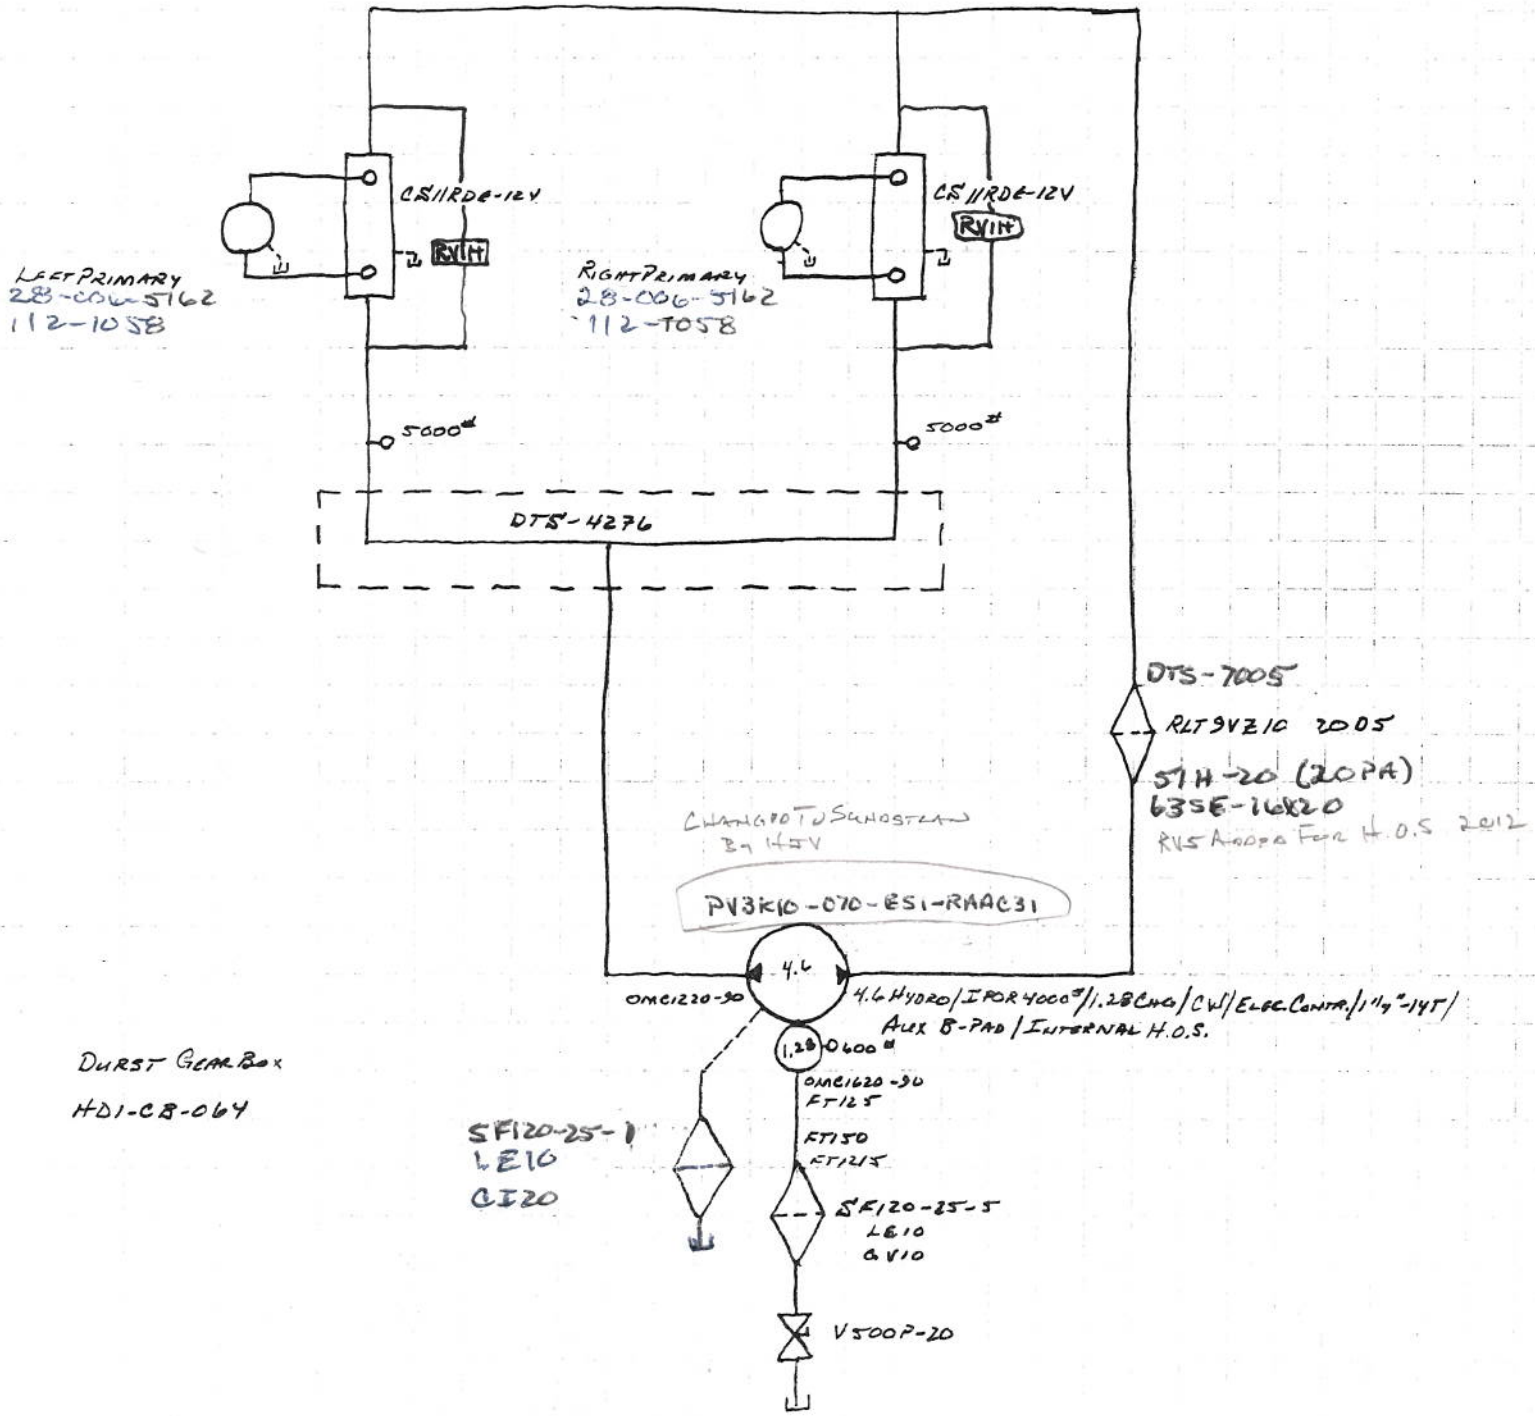 CS11RDE-12V
RV1H
LEFT PRIMARY
28-006-5162
112-1058
CS11RDE-12V
RV1H
RIGHT PRIMARY
28-006-5162
112-1058
5000#
5000#
DTS-4276
DTS-7005
RLT9VZ10 2005
51H-20 (20PA)
63SE-16X20
RV5 ADDED FOR H.O.S 2012
CHANGED TO
BY HJV
PV3K10-070-ES1-RAAC31
4.6
OMC1220-90
4.6 HYDRO/IPOR 4000#/1.28 CHG/CW/ELEC. CONTR./1 1/4"-14T/
AUX B-PAD/INTERNAL H.O.S.
1.28
600#
OMC1620-90
FT125
DURST GEAR BOX
HD1-CB-064
SF120-25-1
LE10
CI20
FT150
FT1215
SF120-25-5
LE10
GV10
V500P-20